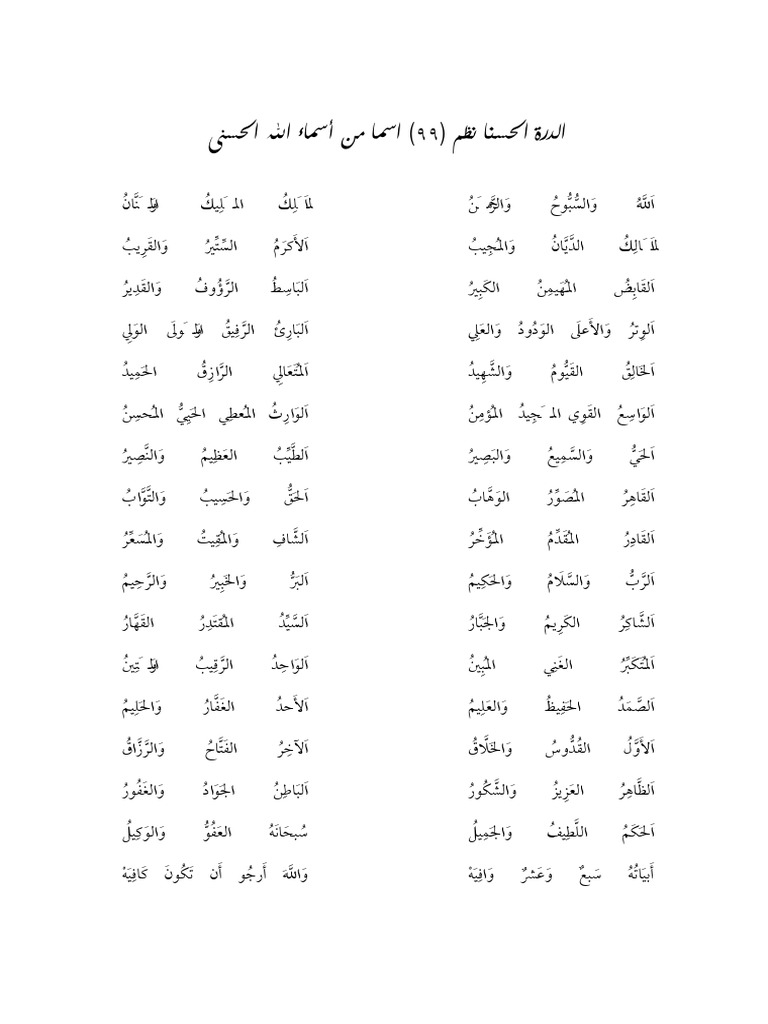 الدرة الحسنا نظم (٩٩) اسما من أسماء الله الحسنى
اَللَّهُ وَالسُّبُّوحُ وَالرَّحْمَنُ اَلمَلِكُ المَلِيكُ وَالمَنَّانُ
اَلمَالِكُ الدَّيَّانُ وَالمُجِيبُ اَلأَكرَمُ السِّتِّيرُ وَالقَرِيبُ
اَلقَابِضُ المُهَيمِنُ الكَبِيرُ اَلبَاسِطُ الرَّؤُوفُ وَالقَدِيرُ
اَلوِترُ وَالأَعلَى الوَدُودُ وَالعَلِي اَلبَارِئُ الرَّفِيقُ وَالمَولَى الوَلِي
اَلخَالِقُ القَيُّومُ وَالشَّهِيدُ اَلمُتَعَالِي الرَّازِقُ الحَمِيدُ
اَلوَاسِعُ القَوِي المَجِيدُ المُؤمِنُ اَلوَارِثُ المُعطِي الحَيِيُّ المُحسِنُ
اَلحَيُّ وَالسَّمِيعُ وَالبَصِيرُ اَلطَّيِّبُ العَظِيمُ وَالنَّصِيرُ
اَلقَاهِرُ المُصَوِّرُ الوَهَّابُ اَلحَقُّ وَالحَسِيبُ وَالتَّوَّابُ
اَلقَادِرُ المُقَدِّمُ المُؤَخِّرُ اَلشَّافِ وَالمُقِيتُ وَالمُسَعِّرُ
اَلرَّبُّ وَالسَّلَامُ وَالحَكِيمُ اَلبَرُّ وَالخَبِيرُ وَالرَّحِيمُ
اَلشَّاكِرُ الكَرِيمُ وَالجَبَّارُ اَلسَّيِّدُ المُقتَدِرُ القَهَّارُ
اَلمُتَكَبِّرُ الغَنِي المُبِينُ اَلوَاحِدُ الرَّقِيبُ وَالمَتِينُ
اَلصَّمَدُ الحَفِيظُ وَالعَلِيمُ اَلأَحدُ الغَفَّارُ وَالحَلِيمُ
اَلأَوَّلُ القُدُّوسُ وَالخَلَّاقُ اَلآخِرُ الفَتَّاحُ وَالرَّزَّاقُ
اَلظَّاهِرُ العَزِيزُ وَالشَّكُورُ اَلبَاطِنُ الجَوَادُ وَالغَفُورُ
اَلحَكَمُ اللَّطِيفُ وَالجَمِيلُ سُبحَانَهُ العَفُوُّ وَالوَكِيلُ
أَبيَاتُهُ سَبعٌ وَعَشرٌ وَافِيَهْ وَاللَّهَ أَرجُو أَن تَكُونَ كَافِيَهْ